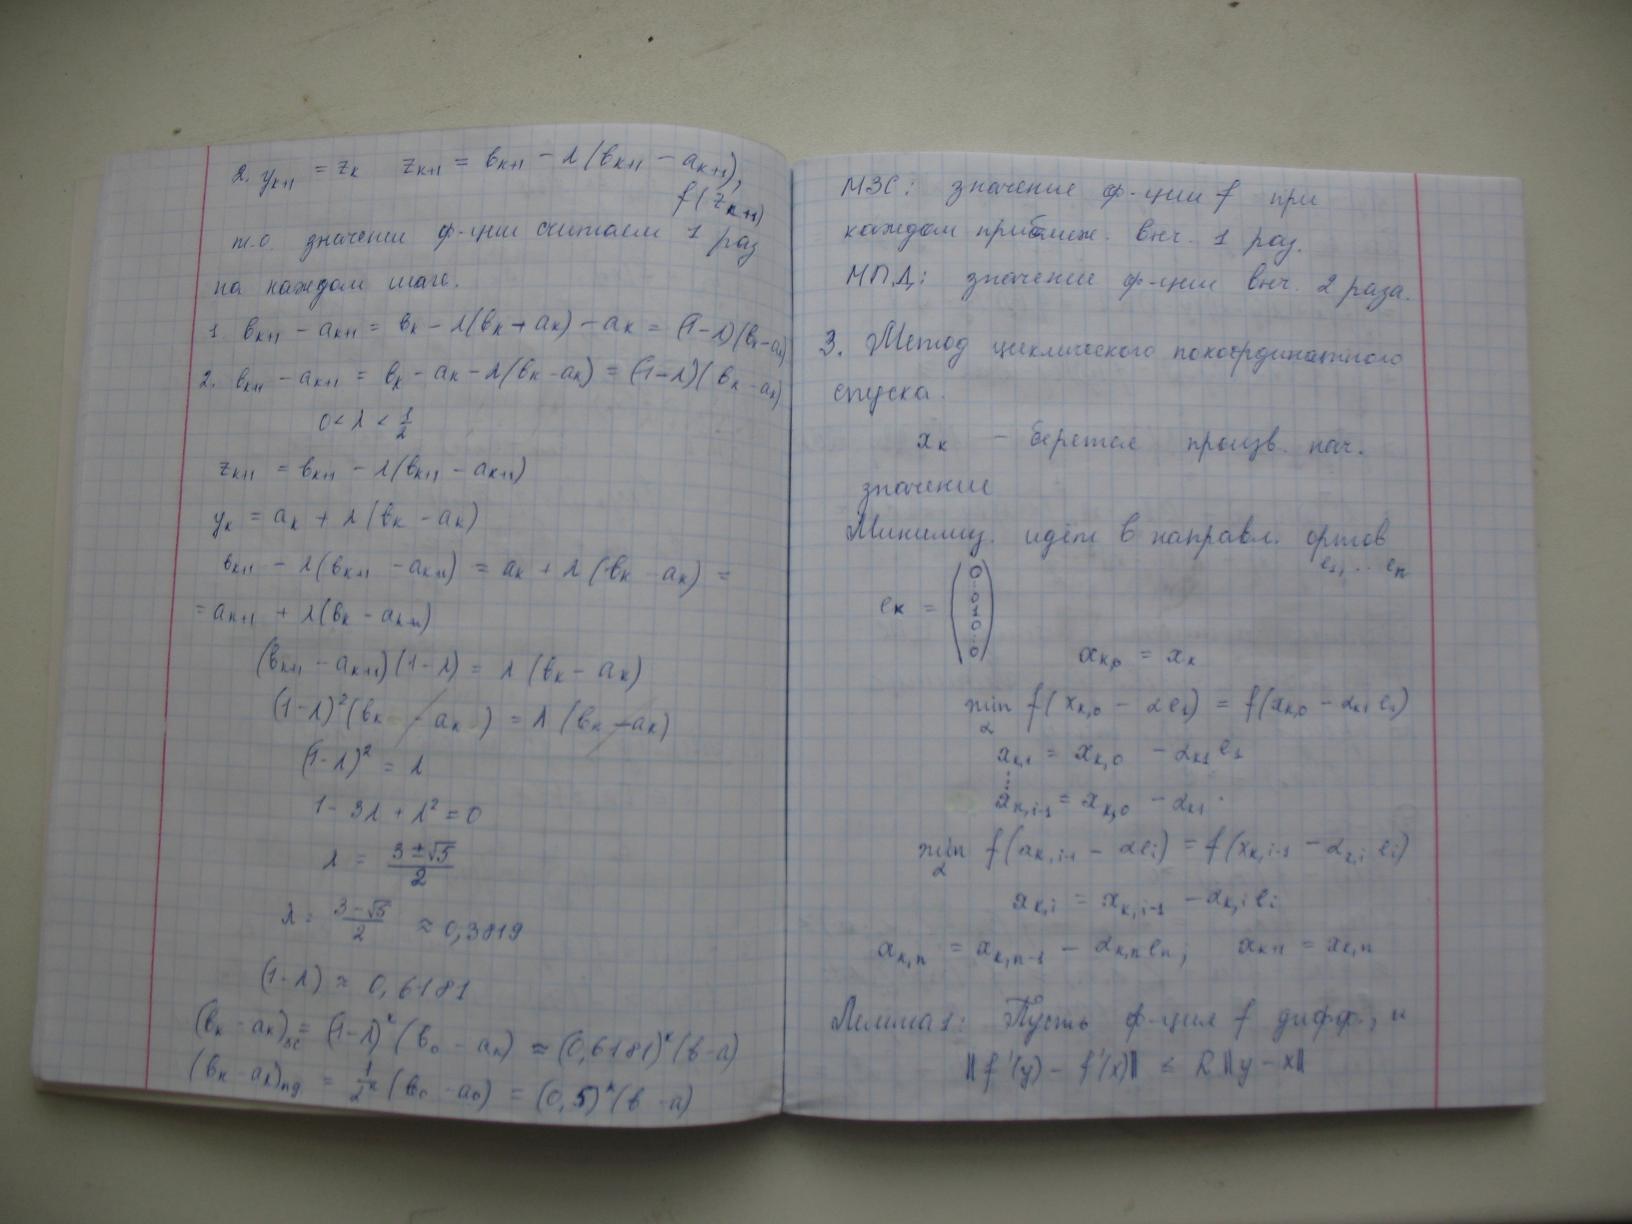 2. yₖ₊₁ = zₖ   zₖ₊₁ = bₖ₊₁ − λ(bₖ₊₁ − aₖ₊₁),
f(zₖ₊₁)
т.о. значени ф-ции считаем 1 раз
на каждом шаге.
1. bₖ₊₁ − aₖ₊₁ = bₖ − λ(bₖ + aₖ) − aₖ = (1−λ)(bₖ−aₖ)
2. bₖ₊₁ − aₖ₊₁ = bₖ − aₖ − λ(bₖ − aₖ) = (1−λ)(bₖ − aₖ)
0 < λ < 1/2
zₖ₊₁ = bₖ₊₁ − λ(bₖ₊₁ − aₖ₊₁)
yₖ = aₖ + λ(bₖ − aₖ)
bₖ₊₁ − λ(bₖ₊₁ − aₖ₊₁) = aₖ + λ(bₖ − aₖ) =
= aₖ₊₁ + λ(bₖ − aₖ₊₁)
(bₖ₊₁ − aₖ₊₁)(1−λ) = λ(bₖ − aₖ)
(1−λ)²(bₖ − aₖ) = λ(bₖ − aₖ)
(1−λ)² = λ
1 − 3λ + λ² = 0
λ = (3 ± √5)/2
λ = (3 − √5)/2 ≈ 0,3819
(1−λ) ≈ 0,6181
(bₖ − aₖ)зс = (1−λ)ᵏ(b₀ − aₖ) ≈ (0,6181)ᵏ(b−a)
(bₖ − aₖ)пд = 1/2ᵏ (b₀ − a₀) = (0,5)ᵏ(b − a)
МЗС: значение ф-ции f при
каждом приближ. выч. 1 раз.
МПД: значение ф-ции выч. 2 раза.
3. Метод циклического покоординатного
спуска.
xₖ – берется произв. нач.
значение
Минимиз. идёт в направл. ортов
e₁, .. eₙ
eₖ = (0 ⋮ 0 1 0 ⋮ 0)
xₖ,₀ = xₖ
min_α f(xₖ,₀ − αe₁) = f(xₖ,₀ − αₖ₁e₁)
xₖ,₁ = xₖ,₀ − αₖ₁e₁
⋮
xₖ,ᵢ₋₁ = xₖ,₀ − αₖ₁ ·
min_α f(xₖ,ᵢ₋₁ − αeᵢ) = f(xₖ,ᵢ₋₁ − αₖ,ᵢ eᵢ)
xₖ,ᵢ = xₖ,ᵢ₋₁ − αₖ,ᵢeᵢ
xₖ,ₙ = xₖ,ₙ₋₁ − αₖ,ₙeₙ;   xₖ₊₁ = xₖ,ₙ
Лемма 1: Пусть ф-ция f дифф., и
‖f'(y) − f'(x)‖ ≤ R‖y − x‖